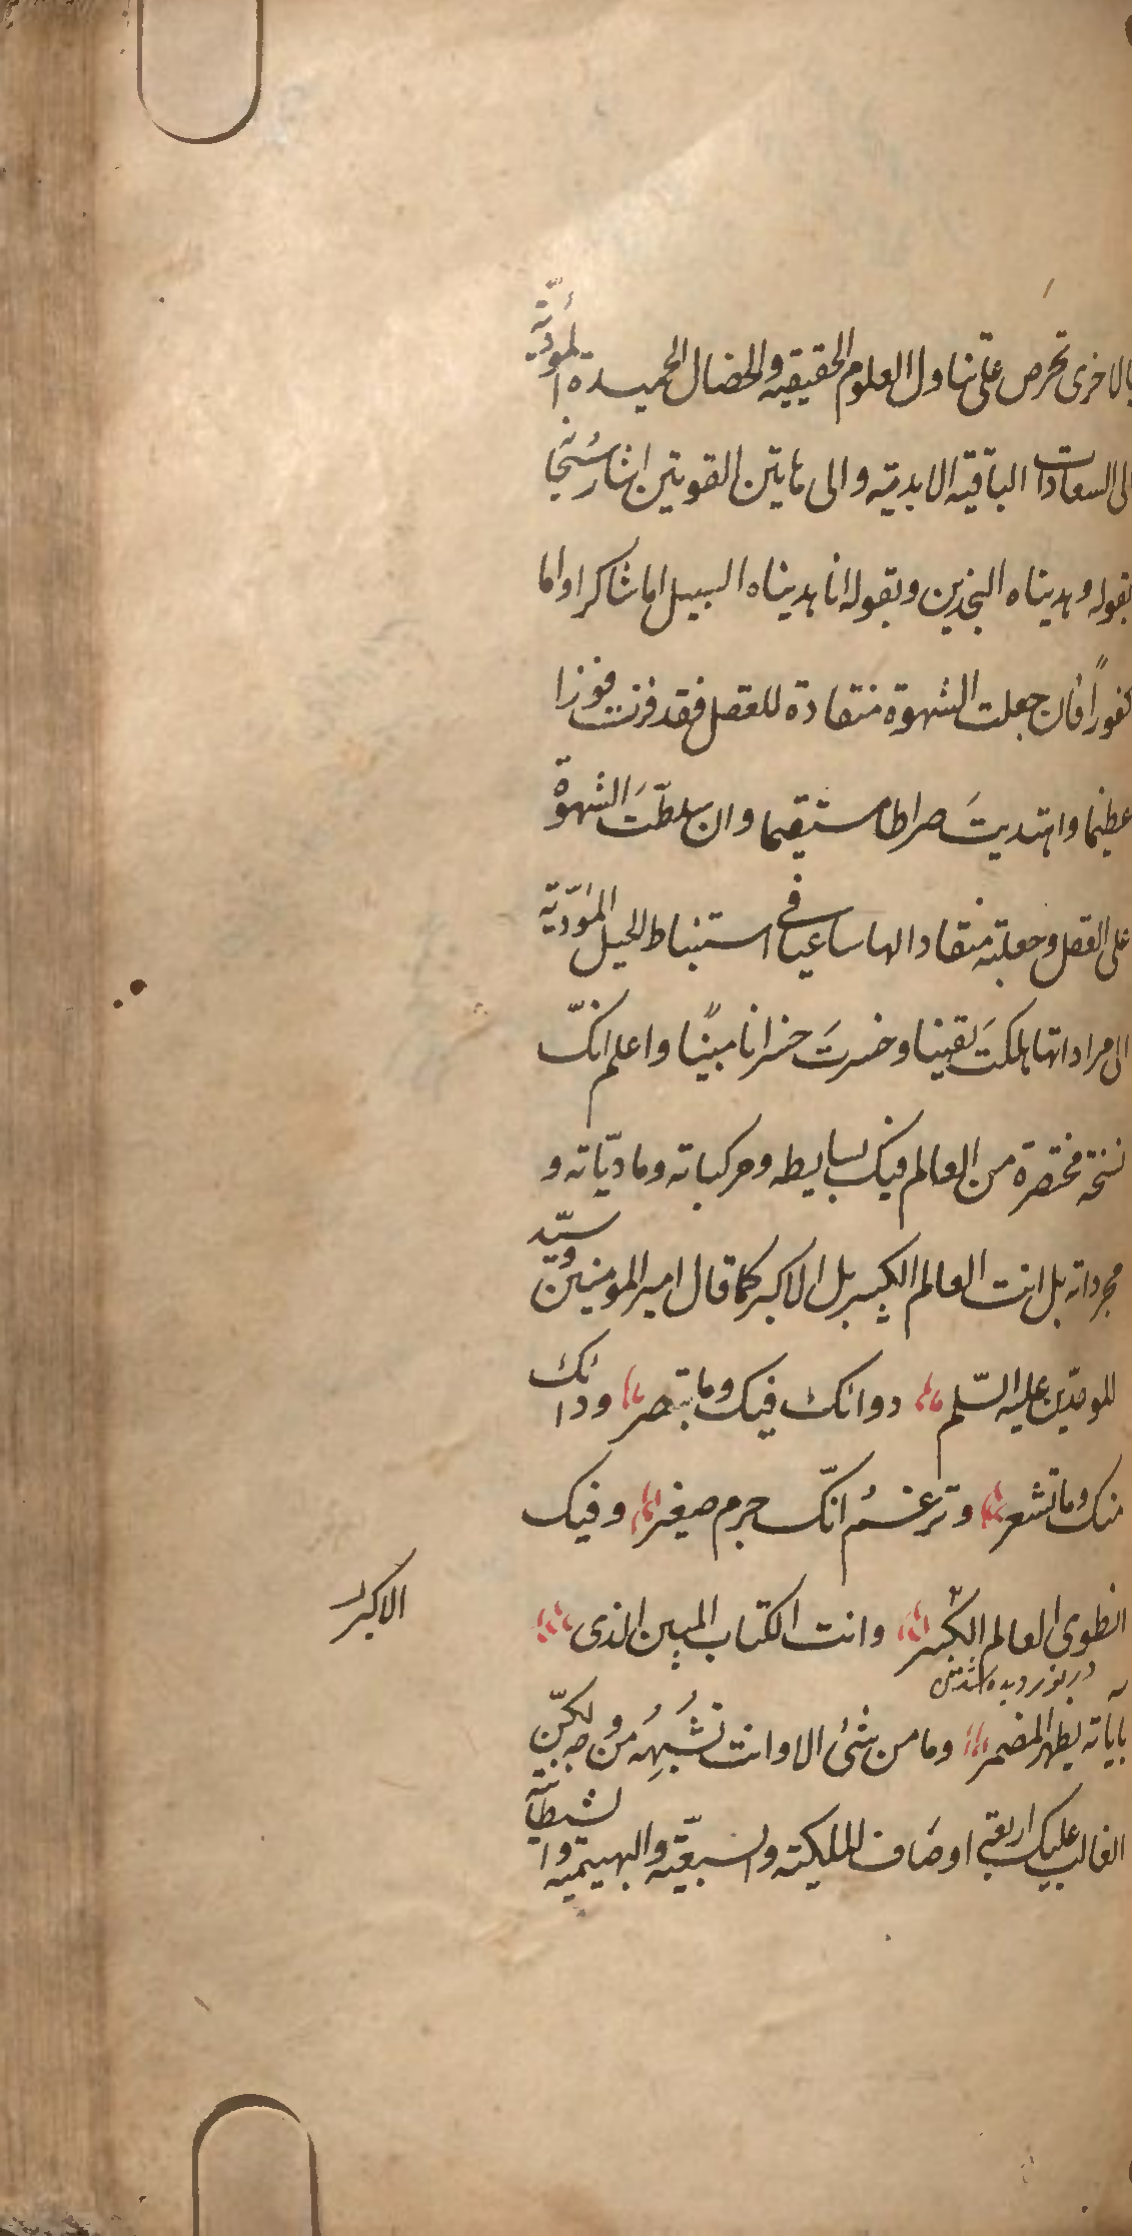 بالاخرى تحرص على تناول العلوم الحقيقيه والخصال الحميدة المؤدّية
الى السعادات الباقيه الابديه والى هاتين القوتين اشار سبحانه
بقوله وهديناه النجدين وبقوله انا هديناه السبيل اما شاكرا واما
كفوراً فان جعلت الشهوة منقادة للعقل فقد فزت فوزا
عظيما واهتديتَ صراطا مستقيما وان سلطّتَ الشهوة
على العقل وجعلته منقادا لها ساعيا فى استنباط الحيل المؤدّية
الى مراداتها هلكتَ يقينا وخسرتَ خسرانا مبينًا واعلم انكّ
نسخة مختصرة من العالم فيك بسايطه ومركباته وماديّاته و
مجرداته بل انت العالم الكبير بل الاكبر كما قال امير المومنين وسيّد
الموحّدين عليه السّلم دوائك فيك وما تبصر ودائك
منك وما تشعر وتزعمُ انكّ جرم صغير وفيك
انطوى العالم الكبير وانت الكتاب المبين الذى
الاكبر
در نورديده شدن
باياته يظهر المضمر وما من شئ الا وانت تُشبِهُه من وجه لكنّ
الغالب عليك اربعة اوصاف الملكية والسبعيّه والبهيميه والشيطانية